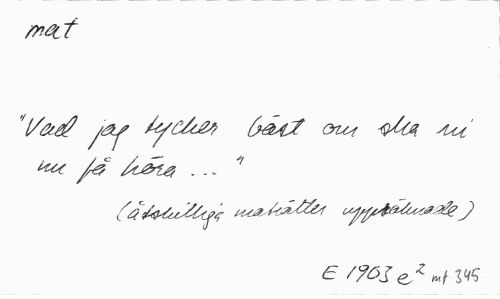 mat
"Vad jag tycker bäst om ska ni
nu få höra ..."
(åtskilliga maträtter uppräknade)
E 1903 e² mt 345